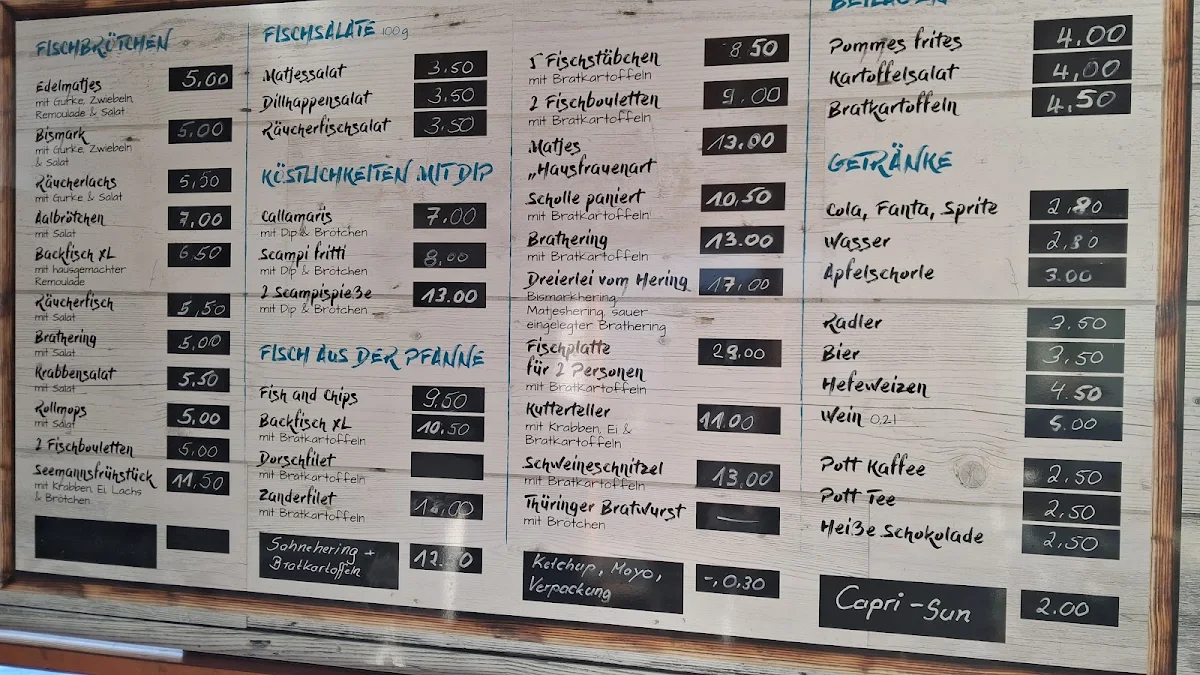 FISCHBRÖTCHEN
Edelmatjes 5,00
mit Gurke, Zwiebeln,
Remoulade & Salat
Bismark 5,00
mit Gurke, Zwiebeln
& Salat
Räucherlachs 5,50
mit Gurke & Salat
Aalbrötchen 7,00
mit Salat
Backfisch XL 6,50
mit hausgemachter
Remoulade
Räucherfisch 5,50
mit Salat
Brathering 5,00
mit Salat
Krabbensalat 5,50
mit Salat
Rollmops 5,00
mit Salat
2 Fischbouletten 5,00
Seemannsfrühstück 11,50
mit Krabben, Ei, Lachs
& Brötchen
FISCHSALATE 100g
Matjessalat 3.50
Dillhappensalat 3.50
Räucherfischsalat 3.50
KÖSTLICHKEITEN MIT DIP
Callamaris 7.00
mit Dip & Brötchen
Scampi fritti 8,00
mit Dip & Brötchen
2 Scampispieße 13.00
mit Dip & Brötchen
FISCH AUS DER PFANNE
Fish and Chips 9,50
Backfisch XL 10,50
mit Bratkartoffeln
Dorschfilet
mit Bratkartoffeln
Zanderfilet
mit Bratkartoffeln
Sahnehering +
Bratkartoffeln
5 Fischstäbchen 8,50
mit Bratkartoffeln
2 Fischbouletten 9,00
mit Bratkartoffeln
Matjes 13,00
„Hausfrauenart
Scholle paniert 10,50
mit Bratkartoffeln
Brathering 13.00
mit Bratkartoffeln
Dreierlei vom Hering 17,00
Bismarkhering,
Matjeshering, sauer
eingelegter Brathering
Fischplatte
für 2 Personen
mit Bratkartoffeln
Kutterteller 11.00
mit Krabben, Ei &
Bratkartoffeln
Schweineschnitzel 13,00
mit Bratkartoffeln
Thüringer Bratwurst —
mit Brötchen
Ketchup, Mayo, -,0.30
Verpackung
BEILAGEN
Pommes frites 4.00
Kartoffelsalat 4,00
Bratkartoffeln 4,50
GETRÄNKE
Cola, Fanta, Sprite 2,80
Wasser 2,80
Apfelschorle 3.00
Radler 3.50
Bier 3,50
Hefeweizen 4.50
Wein 0,2l 5.00
Pott Kaffee 2,50
Pott Tee 2,50
Heiße Schokolade 2,50
Capri-Sun 2.00